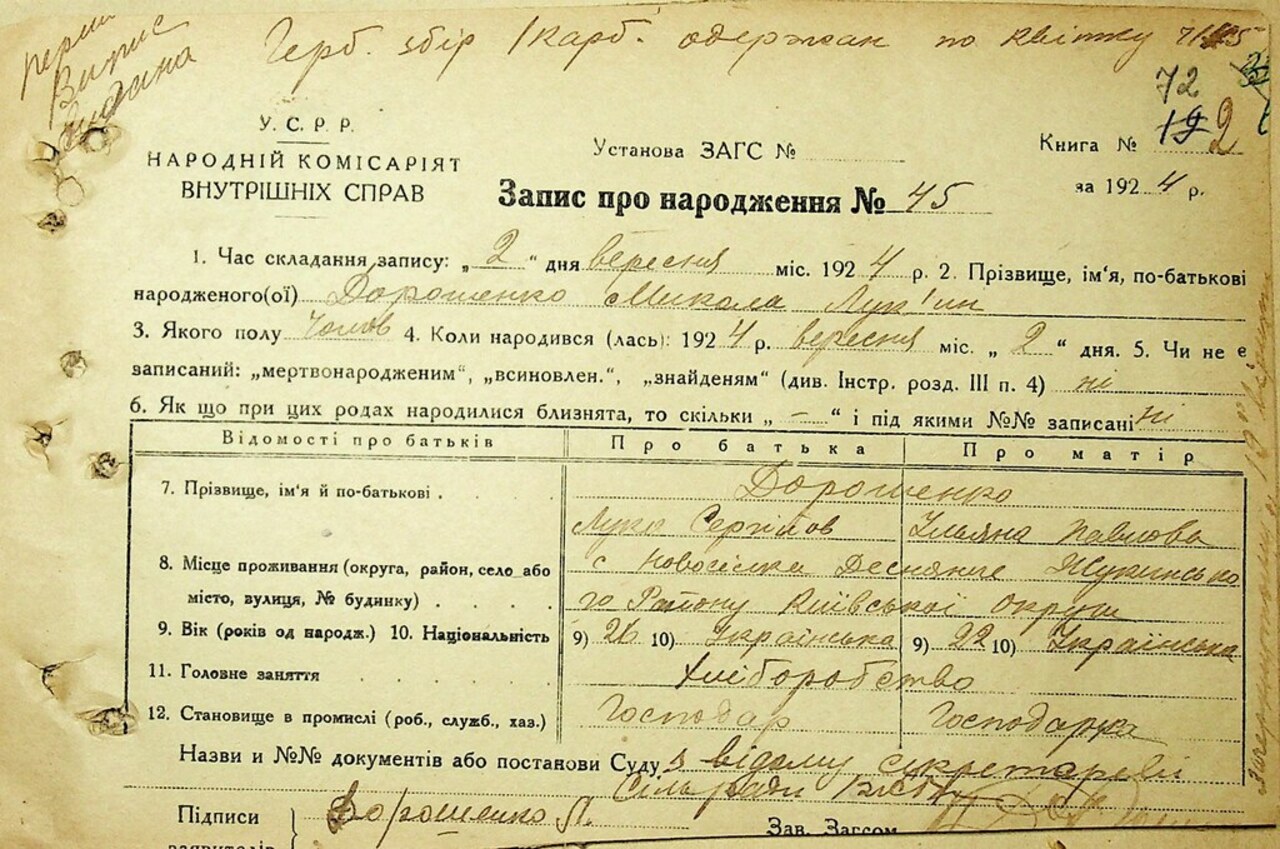 перши
Випис
видана
Герб. збір 1 карб. одержан по квітку
72
192
У. С. Р. Р.
НАРОДНІЙ КОМІСАРІЯТ
ВНУТРІШНІХ СПРАВ
Установа ЗАГС №
Книга № 2
за 1924 р.
Запис про народження № 45
1. Час складання запису: „2“ дня вересня міс. 1924 р. 2. Прізвище, ім'я, по-батькові
народженого(ої) Дорошенко Микола Лук'ин
3. Якого полу чолов 4. Коли народився (лась): 1924 р. вересня міс. „2“ дня. 5. Чи не є
записаний: „мертвонародженим“, „всиновлен.“, „знайденям“ (див. Інстр. розд. III п. 4) ні
6. Як що при цих родах народилися близнята, то скільки „—“ і під якими №№ записані ні
Відомості про батьків Про батька Про матір
7. Прізвище, ім'я й по-батькові . Дорошенко
Лука Сергійов Ульяна Павлова
8. Місце проживання (округа, район, село або с Новосілка Деснянце Жукинсько
місто, вулиця, № будинку) го Району Київської округи
9. Вік (років од народж.) 10. Національність 9) 26 10) Українська 9) 22 10) Українська
11. Головне заняття хліборобство
12. Становище в промислі (роб., служб., хаз.) Господар Господарка
Назви и №№ документів або постанови Суду з відому секретареві
Сільради
Підписи Дорошенко Л. Зав. Загсом
заявителів